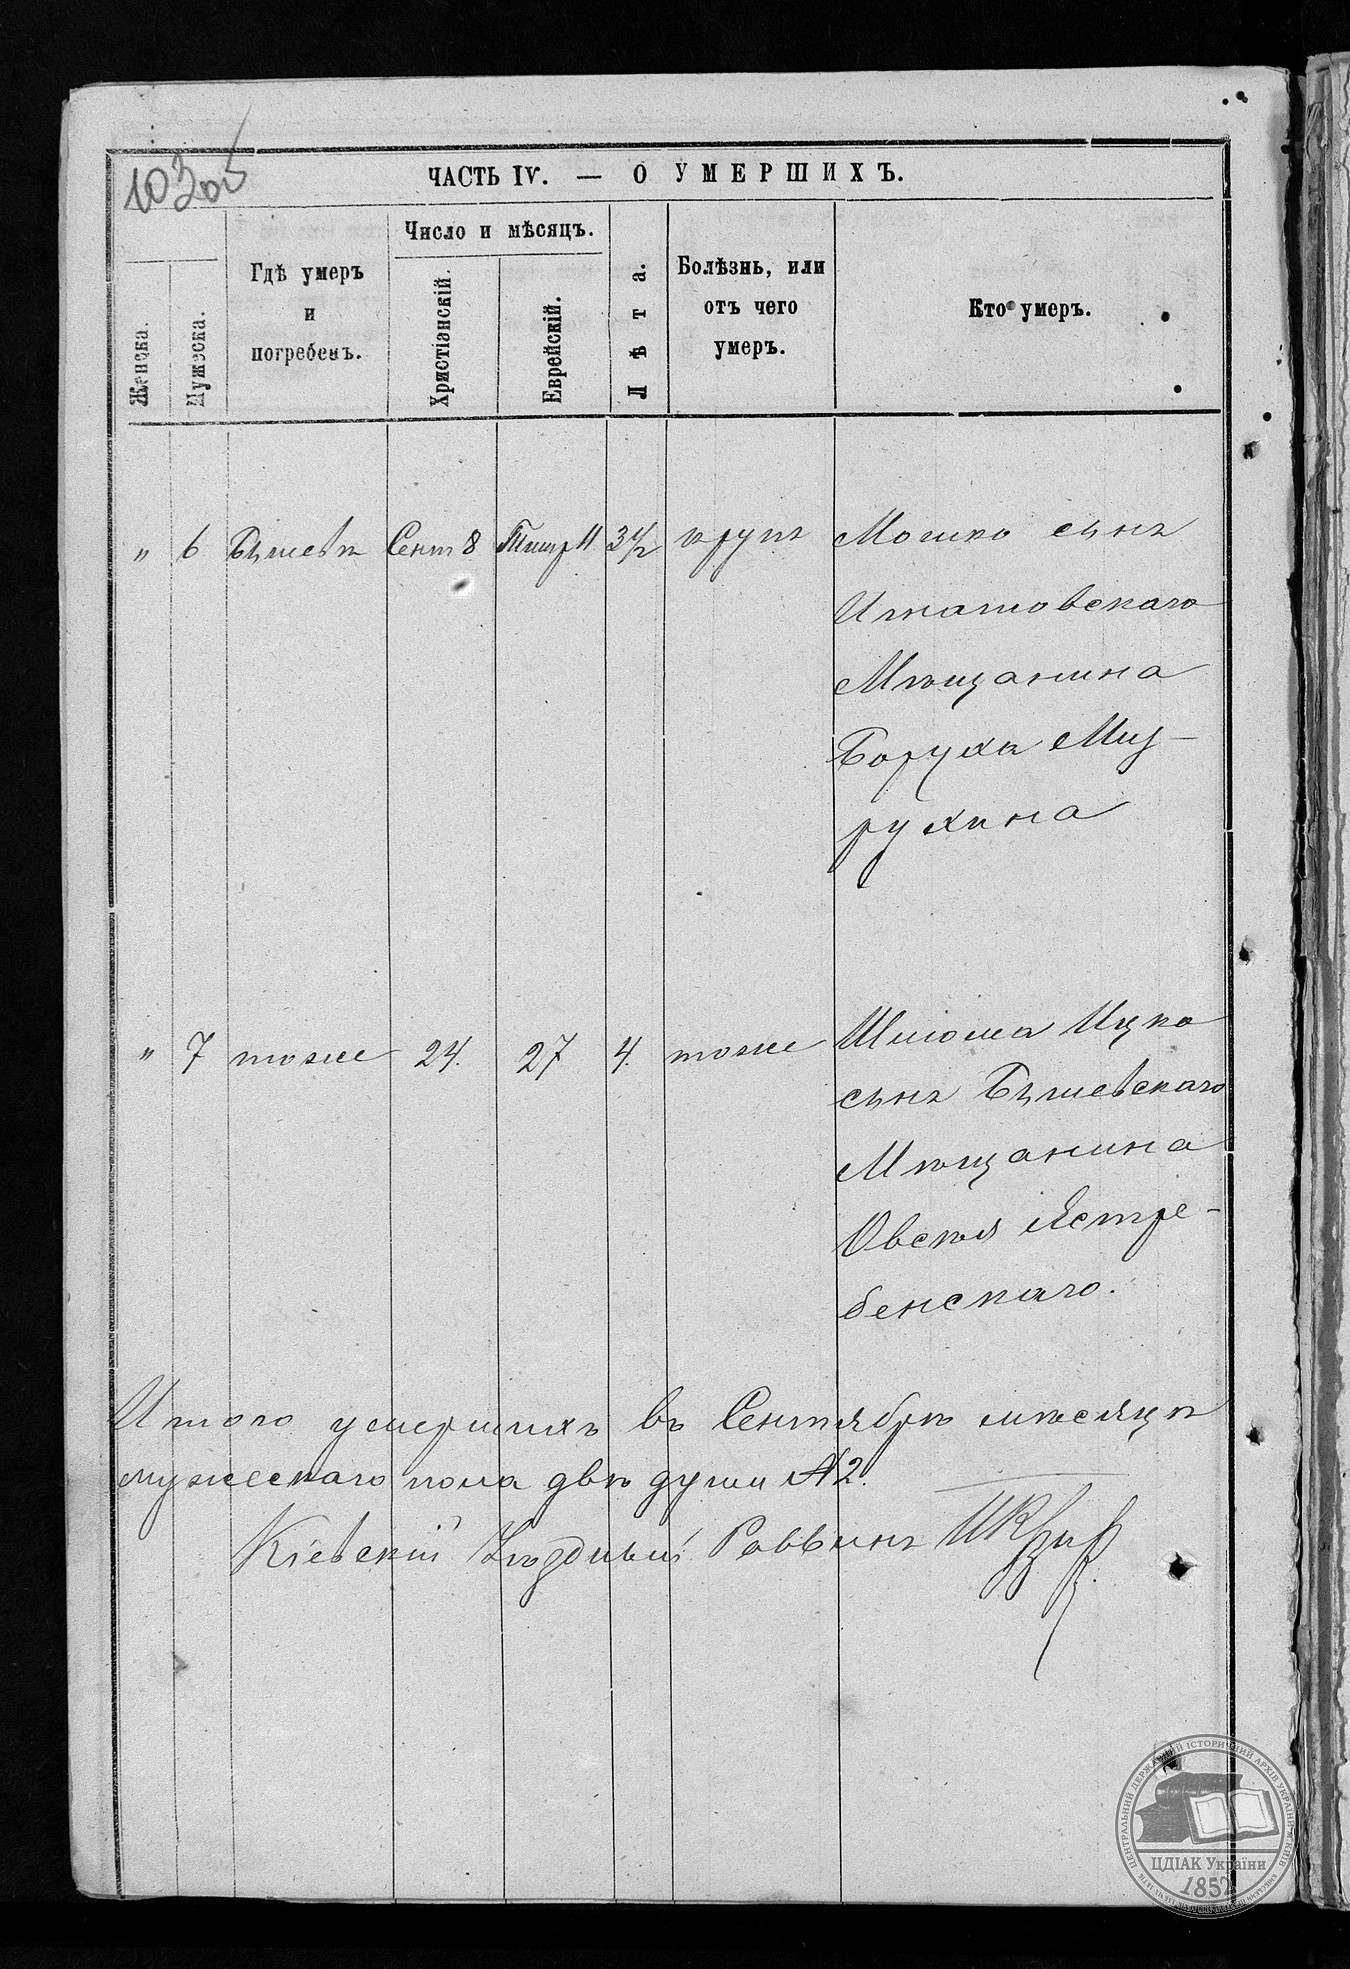 103об
ЧАСТЬ IV. — О УМЕРШИХЪ.
Женска.
Мужеска.
Гдѣ умеръ
и
погребенъ.
Число и мѣсяцъ.
Христіянскій.
Еврейскій.
Лѣта.
Болѣзнь, или
отъ чего
умеръ.
Кто умеръ.
„ 6 Бышевъ Сент 8 Тишр 11 3½ крупъ Мошко сынъ
Игнатовскаго
Мѣщанина
Боруха Му-
рухина
„ 7 тоже 24. 27 4. тоже Шлёма Ицко
сынъ Бышевскаго
Мѣщанина
Овсія Ястре-
бенскаго.
Итого умершихъ въ Сентябрѣ мѣсяцѣ
мужескаго пола двѣ души №2.
Кіевскій Уѣздный Раввинъ
ЦЕНТРАЛЬНИЙ ДЕРЖАВНИЙ ІСТОРИЧНИЙ АРХІВ УКРАЇНИ, М. КИЇВ
ЦДІАК України
1852